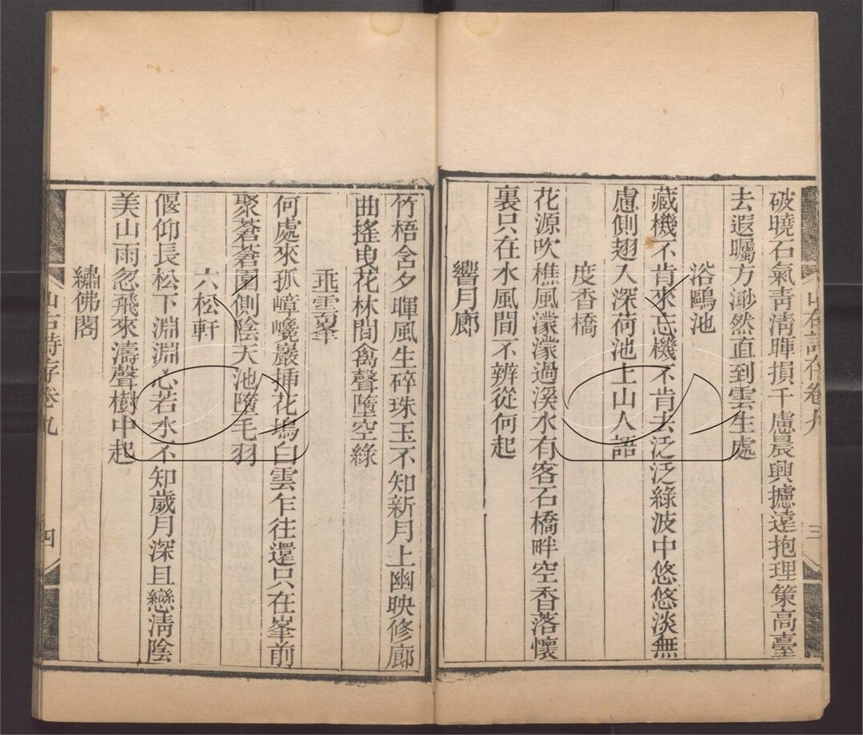 破曉石氣靑淸暉損千慮晨興攄遠抱理策高臺
去遐矚方渺然直到雲生處
浴鷗池
藏機不肯來忘機不肯去泛泛綠波中悠悠淡無
慮側翅入深荷池上山人語
度香橋
花源吹樵風濛濛過溪水有客石橋畔空香落懷
裏只在水風間不辨從何起
響月廊
山右詩存卷九
三
竹梧含夕暉風生碎珠玉不知新月上幽映修廊
曲搖曳花林間禽聲墮空綠
乖雲峯
何處來孤嶂巉巖揷花塢白雲乍往還只在峯前
聚蒼蒼面側陰天池墮毛羽
六松軒
偃仰長松下淵淵心若水不知歲月深且戀淸陰
美山雨忽飛來濤聲樹中起
繡佛閣
山右詩存卷九
四